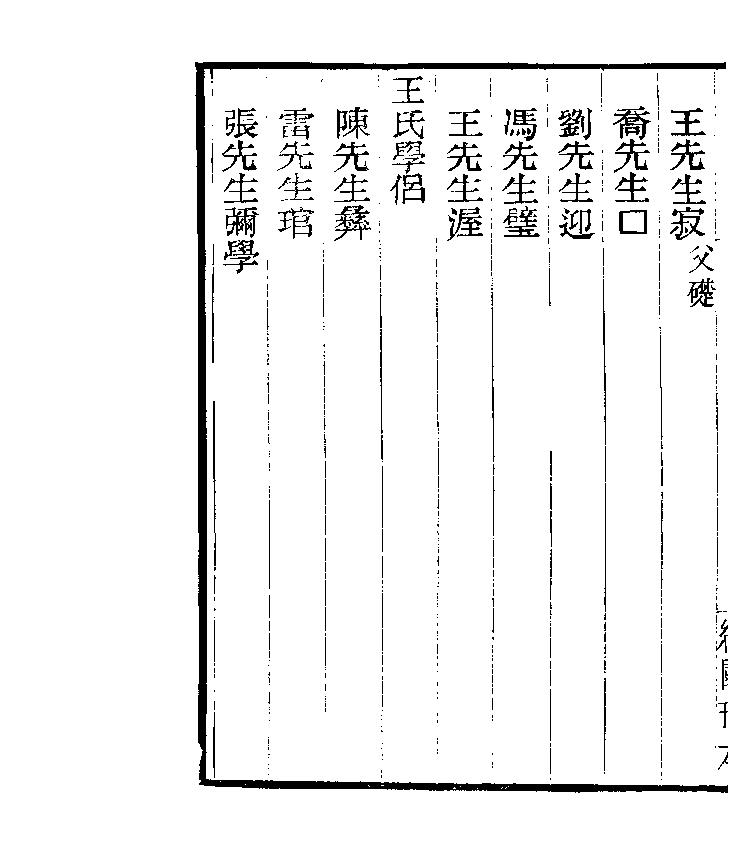 王先生寂父礎
喬先生□
劉先生迎
馮先生璧
王先生渥
王氏學侶
陳先生彝
雷先生琯
張先生彌學